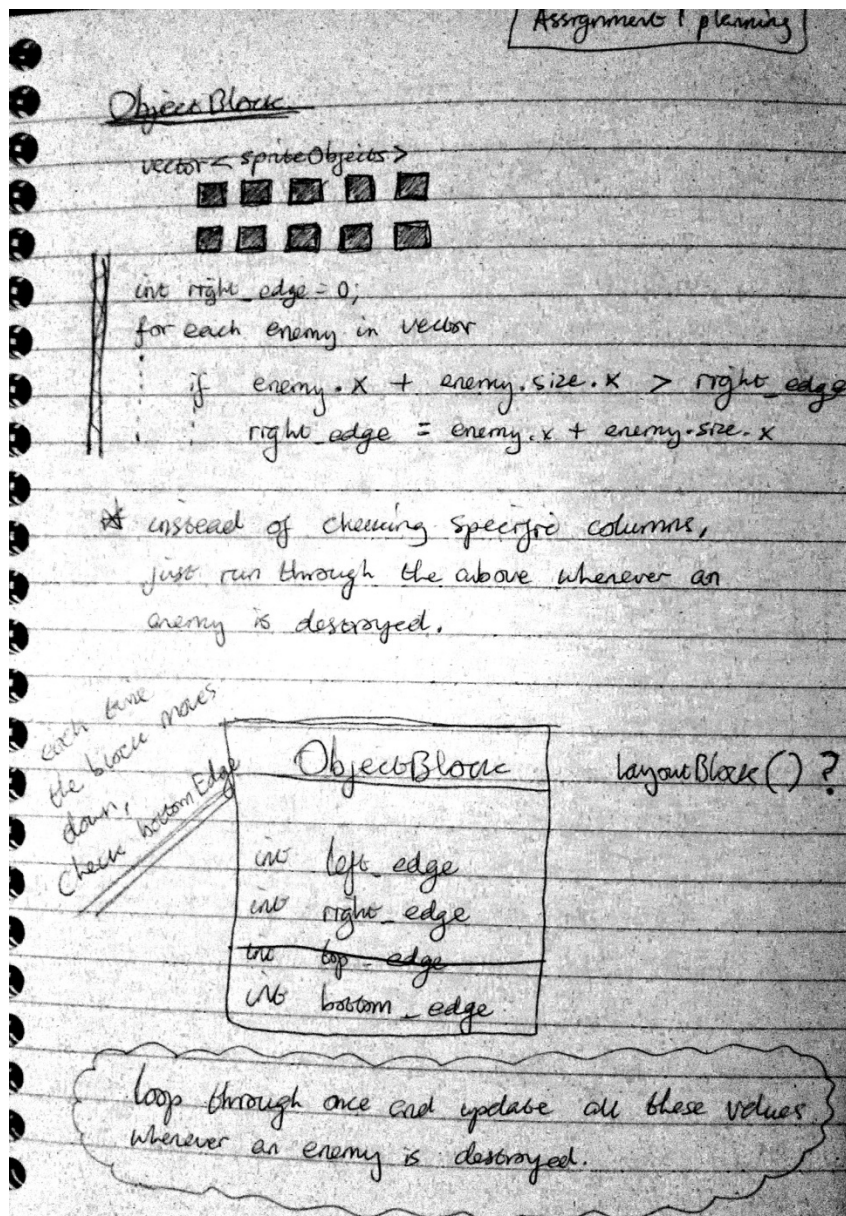 Assignment 1 planning
ObjectBlock
vector<spriteObjects>
int right_edge = 0;
for each enemy in vector
if enemy.x + enemy.size.x > right_edge
right_edge = enemy.x + enemy.size.x
* instead of checking specific columns,
just run through the above whenever an
enemy is destroyed.
each time
the block moves
down,
check bottomEdge
ObjectBlock
layoutBlock()?
int left_edge
int right_edge
int top_edge
int bottom_edge
loop through once and update all these values
whenever an enemy is destroyed.